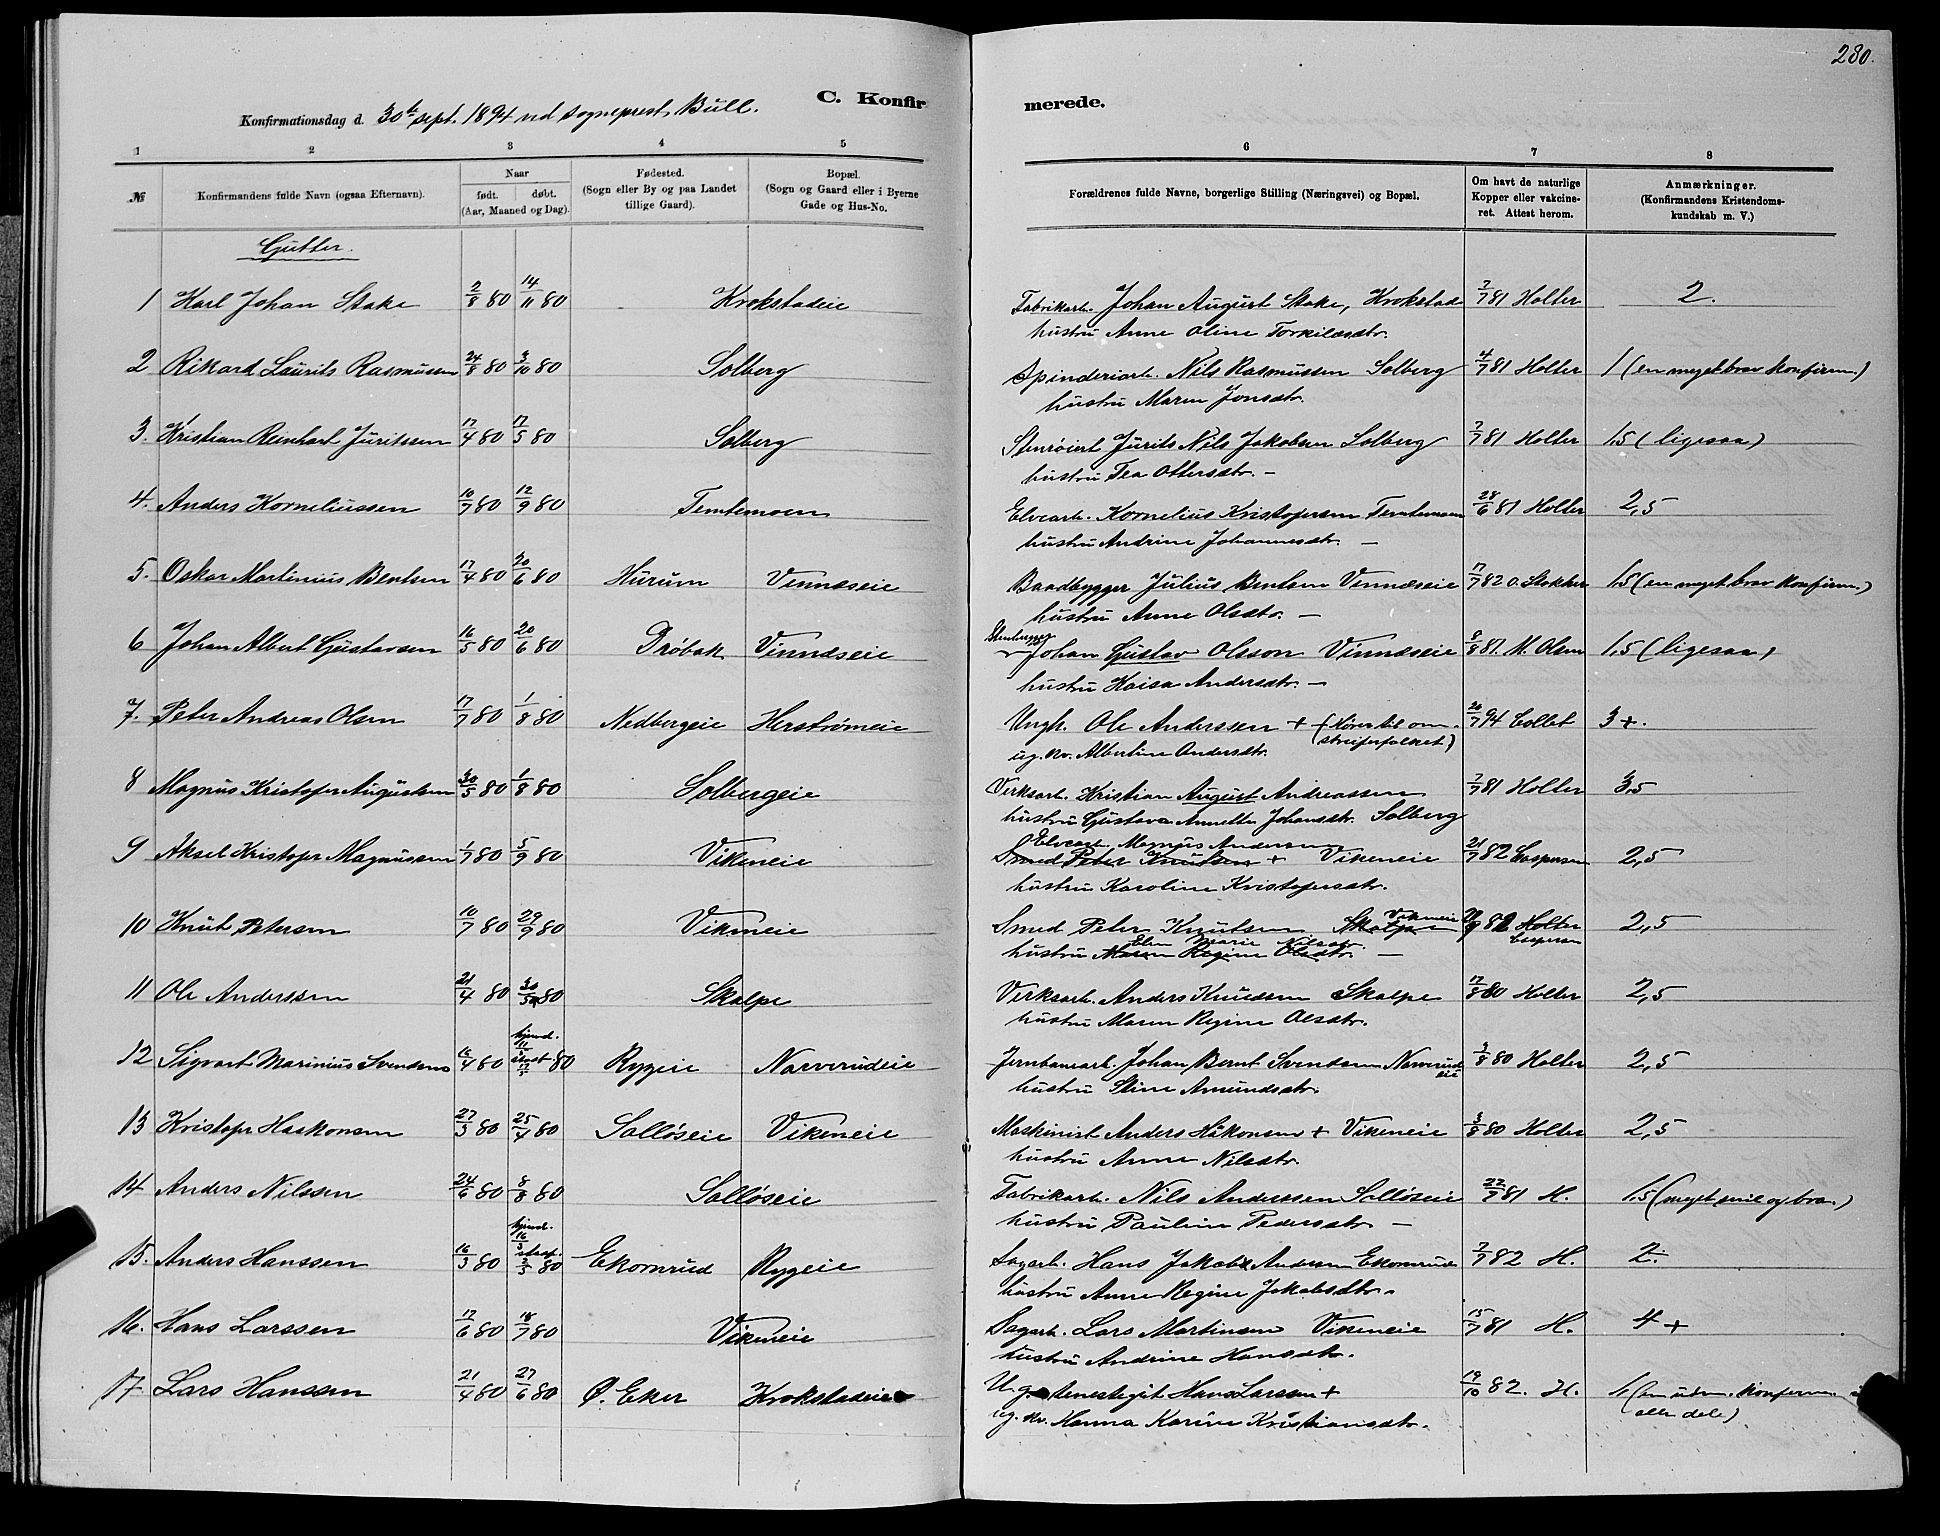 280.
C. Konfirmerede.
Konfirmationsdag d. 30te sept. 1894 ved sogneprest Bull.
1 2 3 4 5 6 7 8
№ Konfirmandens fulde Navn (ogsaa Efternavn). Naar født. døbt. (Aar, Maaned og Dag). Fødested. (Sogn eller By og paa Landet tillige Gaard). Bopæl. (Sogn og Gaard eller i Byerne Gade og Hus-No. Forældrenes fulde Navne, borgerlige Stilling (Næringsvei) og Bopæl. Om havt de naturlige Kopper eller vakcineret. Attest herom. Anmærkninger. (Konfirmandens Kristendomskundskab m. V.)
Gutter.
1 Karl Johan Stake 2/8 80 14/11 80 Krokstadeie Fabrikarb. Johan August Stake, Krokstad 7/7 81 Holter 2.
hustru Anne Oline Torkilsdtr.
2 Rikard Laurits Rasmussen 24/8 80 3/10 80 Solberg Spinderiarb. Nils Rasmussen Solberg 4/7 81 Holter 1 (en meget brav konfirm.)
hustru Maren Jonsdtr.
3. Kristian Reinhart Juritssen 17/4 80 17/5 80 Solberg Jurits Nils Jakobsen Solberg 7/7 81 Holter 1,5 (ligesaa)
hustru Tea Ottersdtr. –
4. Anders Korneliussen 10/7 80 12/9 80 Temtemoen Elvearb. Kornelius Kristofersen Temtemoen 28/6 81 Holter 2,5
hustru Andrine Johannesdtr. –
5. Oskar Martinius Bentsen 17/4 80 20/6 80 Hurum Vinnæseie Baadbygger Julius Bentsen Vinnæseie 17/7 82 O. Stokker 1,5 (en meget brav konfirm.)
hustru Anne Olsdtr. –
6 Johan Albert Gustavsen 16/5 80 20/6 80 Drøbak Vinnæseie Johan Gustav Olsson Vinnæseie 8/8 81. M. Olsen 1,5 (ligesaa)
hustru Kaisa Andersdtr. –
7. Peter Andreas Olsen 17/7 80 1/8 80 Nedbergeie Herstrømeie Ungk. Ole Anderssen + (hører til omstreiferfolket) 20/7 94 Collet 3+.
ug. kv. Albertine Andersdtr.
8 Magnus Kristofer Augustsen 30/5 80 1/8 80 Solbergeie Verksarb. Kristian August Andreassen 7/7 81 Holter 3,5
hustru Gustava Annette Johansdtr. Solberg
9 Aksel Kristofer Magnussen 1/7 80 5/9 80 Vikeneie Elvearb. Magnus Andersen
Smed Peter Knutsen + Vikeneie 21/7 82 Caspersen 2,5
hustru Karoline Kristofersdtr.
10 Knut Petersen 10/7 80 29/9 80 Vikeneie Smed Peter Knutsen Skalpe Vikeneie 82 Holter Caspersen 2,5
hustru Maren Regine Olsdtr. Elen Marie Nilsdtr. –
11 Ole Anderssen 21/4 80 30/5 80 Skalpe Verksarb. Anders Knudsen Skalpe 17/8 80 Holter 2,5
hustru Maren Regine Olsdtr.
12 Sigvart Marinius Svendsen 16/4 80 hjemd. 80 Rygeie Narverudeie Jernbanearb. Johan Bernt Svendsen Narverudeie 3/8 80 Holter 2,5
hustru Stine Amundsdtr.
13 Kristofer Haakonsen 27/3 80 25/4 80 Solløseie Vikeneie Maskinist Anders Håkonsen + Vikeneie 3/8 80 Holter 2,5
hustru Anne Nilsdtr.
14 Anders Nilssen 24/6 80 8/8 80 Solløseie Fabrikarb. Nils Anderssen Solløseie 22/7 81 H. 1,5 (meget snil og bra.)
hustru Pauline Pedersdtr. –
15. Anders Hanssen 16/3 80 hjemd. 16/3 80 Ekornrud Rygeie Sagarb. Hans Jakob Andersen Ekornrud 7/7 82 H. 2.
hustru Anne Regine Jakobsdtr.
16. Hans Larssen 17/6 80 18/7 80 Vikeneie Sagarb. Lars Martinsen Vikeneie 15/7 81 H. 4+
hustru Andrine Hansdtr.
17 Lars Hanssen 21/4 80 27/6 80 Ø. Eker Krokstadeie Ug. tenestegut Hans Larssen + 19/10 82. H. 1 (en udm. konfirm. i alle dele)
ug. kv. Hanna Karine Kristiansdtr.